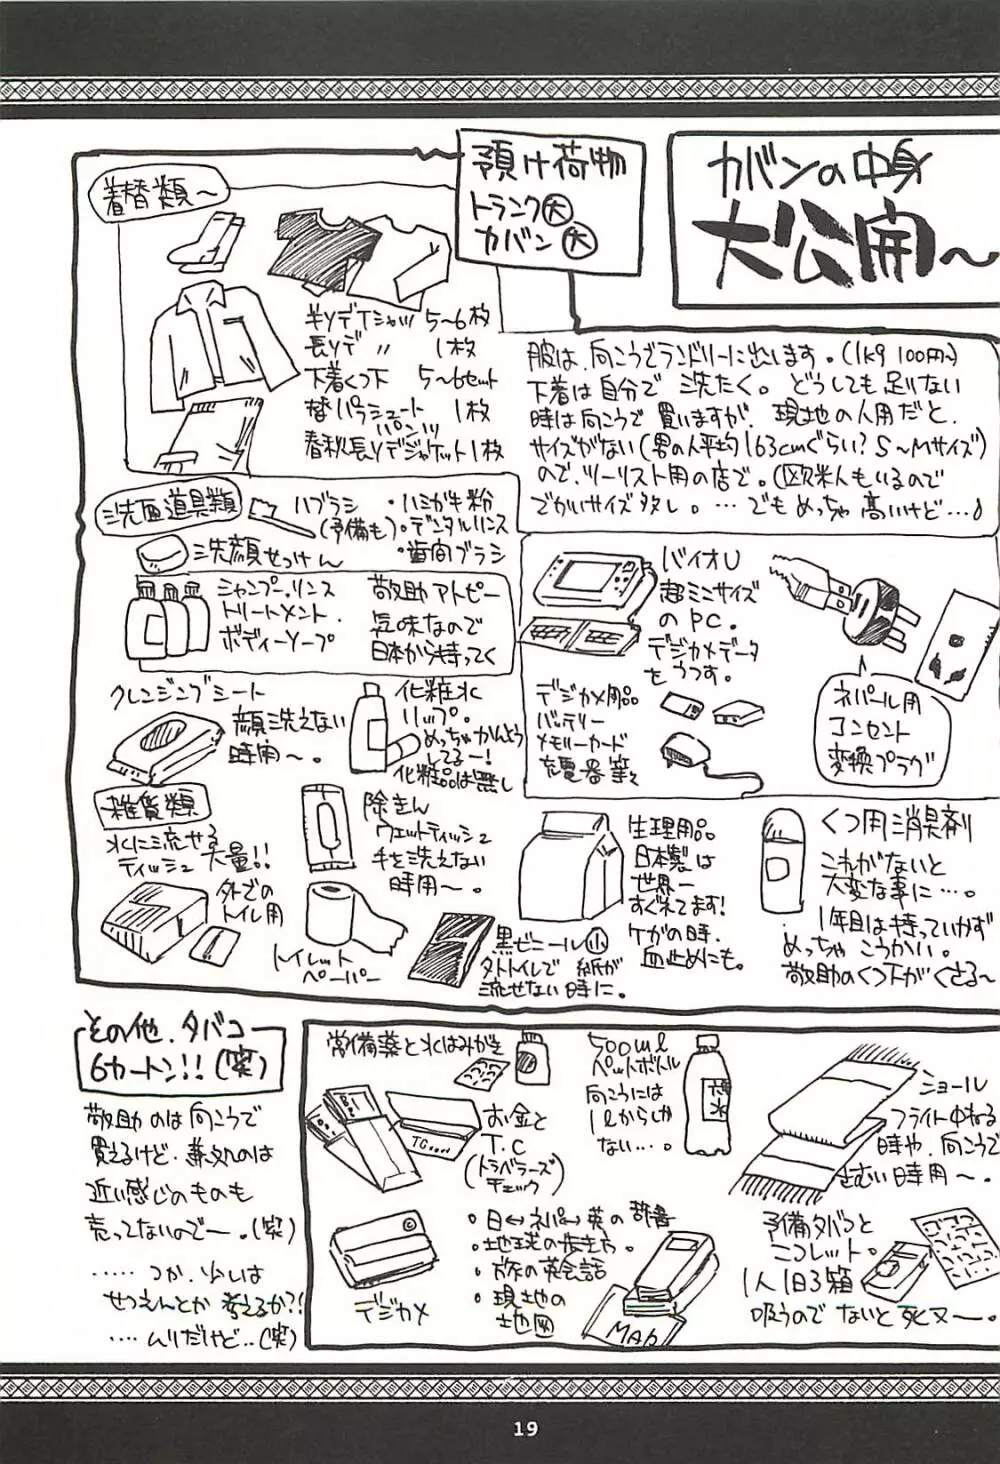 カバンの中身
大公開〜
預け荷物
トランク大
カバン大
着替類〜
半ソデTシャツ 5〜6枚
長ソデ 〃 1枚
下着くつ下 5〜6セット
替パラシュート 1枚
パンツ
春秋長ソデジャケット1枚
服は、向こうでランドリーに出します。(1kg 100円〜)
下着は自分で 洗たく。どうしても足りない
時は向こうで買いますが、現地の人用だと、
サイズがない(男の人平均163cmぐらい?S〜Mサイズ)
ので、ツーリスト用の店で。(欧米人もいるので
でかいサイズ多し。…でもめっちゃ高いけど…♪
洗面道具類
ハブラシ
(予備も)
・ハミガキ粉
・デンタルリンス
・歯間ブラシ
洗顔せっけん
シャンプー、リンス
トリートメント、
ボディーソープ
敬助アトピー
気味なので
日本から持ってく
クレンジングシート
顔洗えない
時用〜。
化粧水
リップ。
めっちゃかんそう
してるー!
化粧品は無し
バイオU
超ミニサイズ
のPC。
デジカメデータ
をうつす。
デジカメ用品
バッテリー
メモリーカード
充電器等々
ネパール用
コンセント
変換プラグ
雑貨類
水に流せる
ティッシュ大量!!
外での
トイレ用
除きん
ウェットティッシュ
手を洗えない
時用〜。
トイレット
ペーパー
黒ビニール小
外トイレで 紙が
流せない時に。
生理用品
日本製は
世界一
すぐれてます!
ケガの時、
血止めにも。
くつ用消臭剤
これがないと
大変な事に…。
1年目は持っていかず
めっちゃこうかい。
敬助のくつ下がくさる〜
その他、タバコ
6カートン!!(笑)
敬助のは向こうで
買えるけど、兼処のは
近い感じのものも
売ってないのでー。(笑)
……つか、少しは
せつえんとか考えるか?!
……ムリだけど…(笑)
常備薬と水はみがき
500ml
ペットボトル
向こうには
1lからしか
ない…。
天然水
ショール
フライト中ねる
時や、向こうで
さむい時用〜。
お金と
T.C
(トラベラーズ
チェック)
デジカメ
・日↔ネパ↔英の辞書
・地球の歩き方。
・旅の英会話
・現地の
地図
MAP
予備タバコと
ニコレット。
1人1日3箱
吸うのでないと死ヌ〜。
19